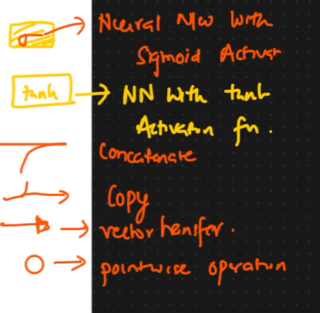 σ → Neural N/w with
Sigmoid Activat
tanh → NN with tanh
Activation fn.
Concatenate
Copy
→ vector transfer.
→ pointwise operation